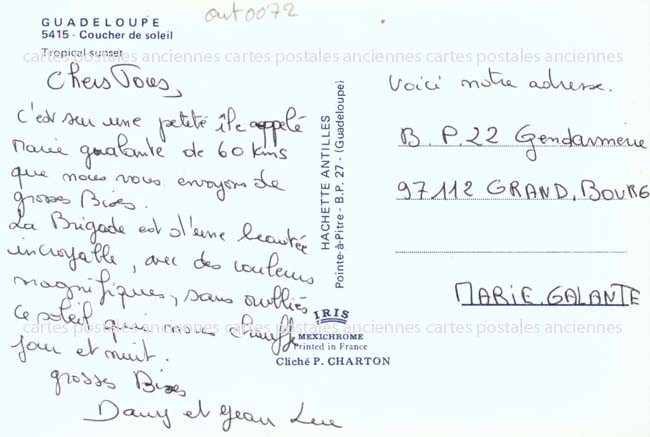 out0072
GUADELOUPE
5415 - Coucher de soleil
Tropical sunset
cartes postales anciennes cartes postales anciennes cartes postales anciennes
Chers Tous,
C'est sur une petite île appelé
Marie gualante de 60 kms
que nous vous envoyons de
grosses Bises.
La Brigade est d'une beautée
incroyable, avec des couleurs
magnifiques, sans oubliés
Ce soleil qui nous chauffe
jour et nuit.
grosses Bises
Dany et Jean Luc
HACHETTE ANTILLES
Pointe-à-Pitre - B.P. 27 - (Guadeloupe)
IRIS
MEXICHROME
Printed in France
Cliché P. CHARTON
Voici notre adresse.
B.P.22 Gendarmerie
97112 GRAND.BOURG
MARIE.GALANTE
cartes postales anciennes cartes postales anciennes cartes postales anciennes